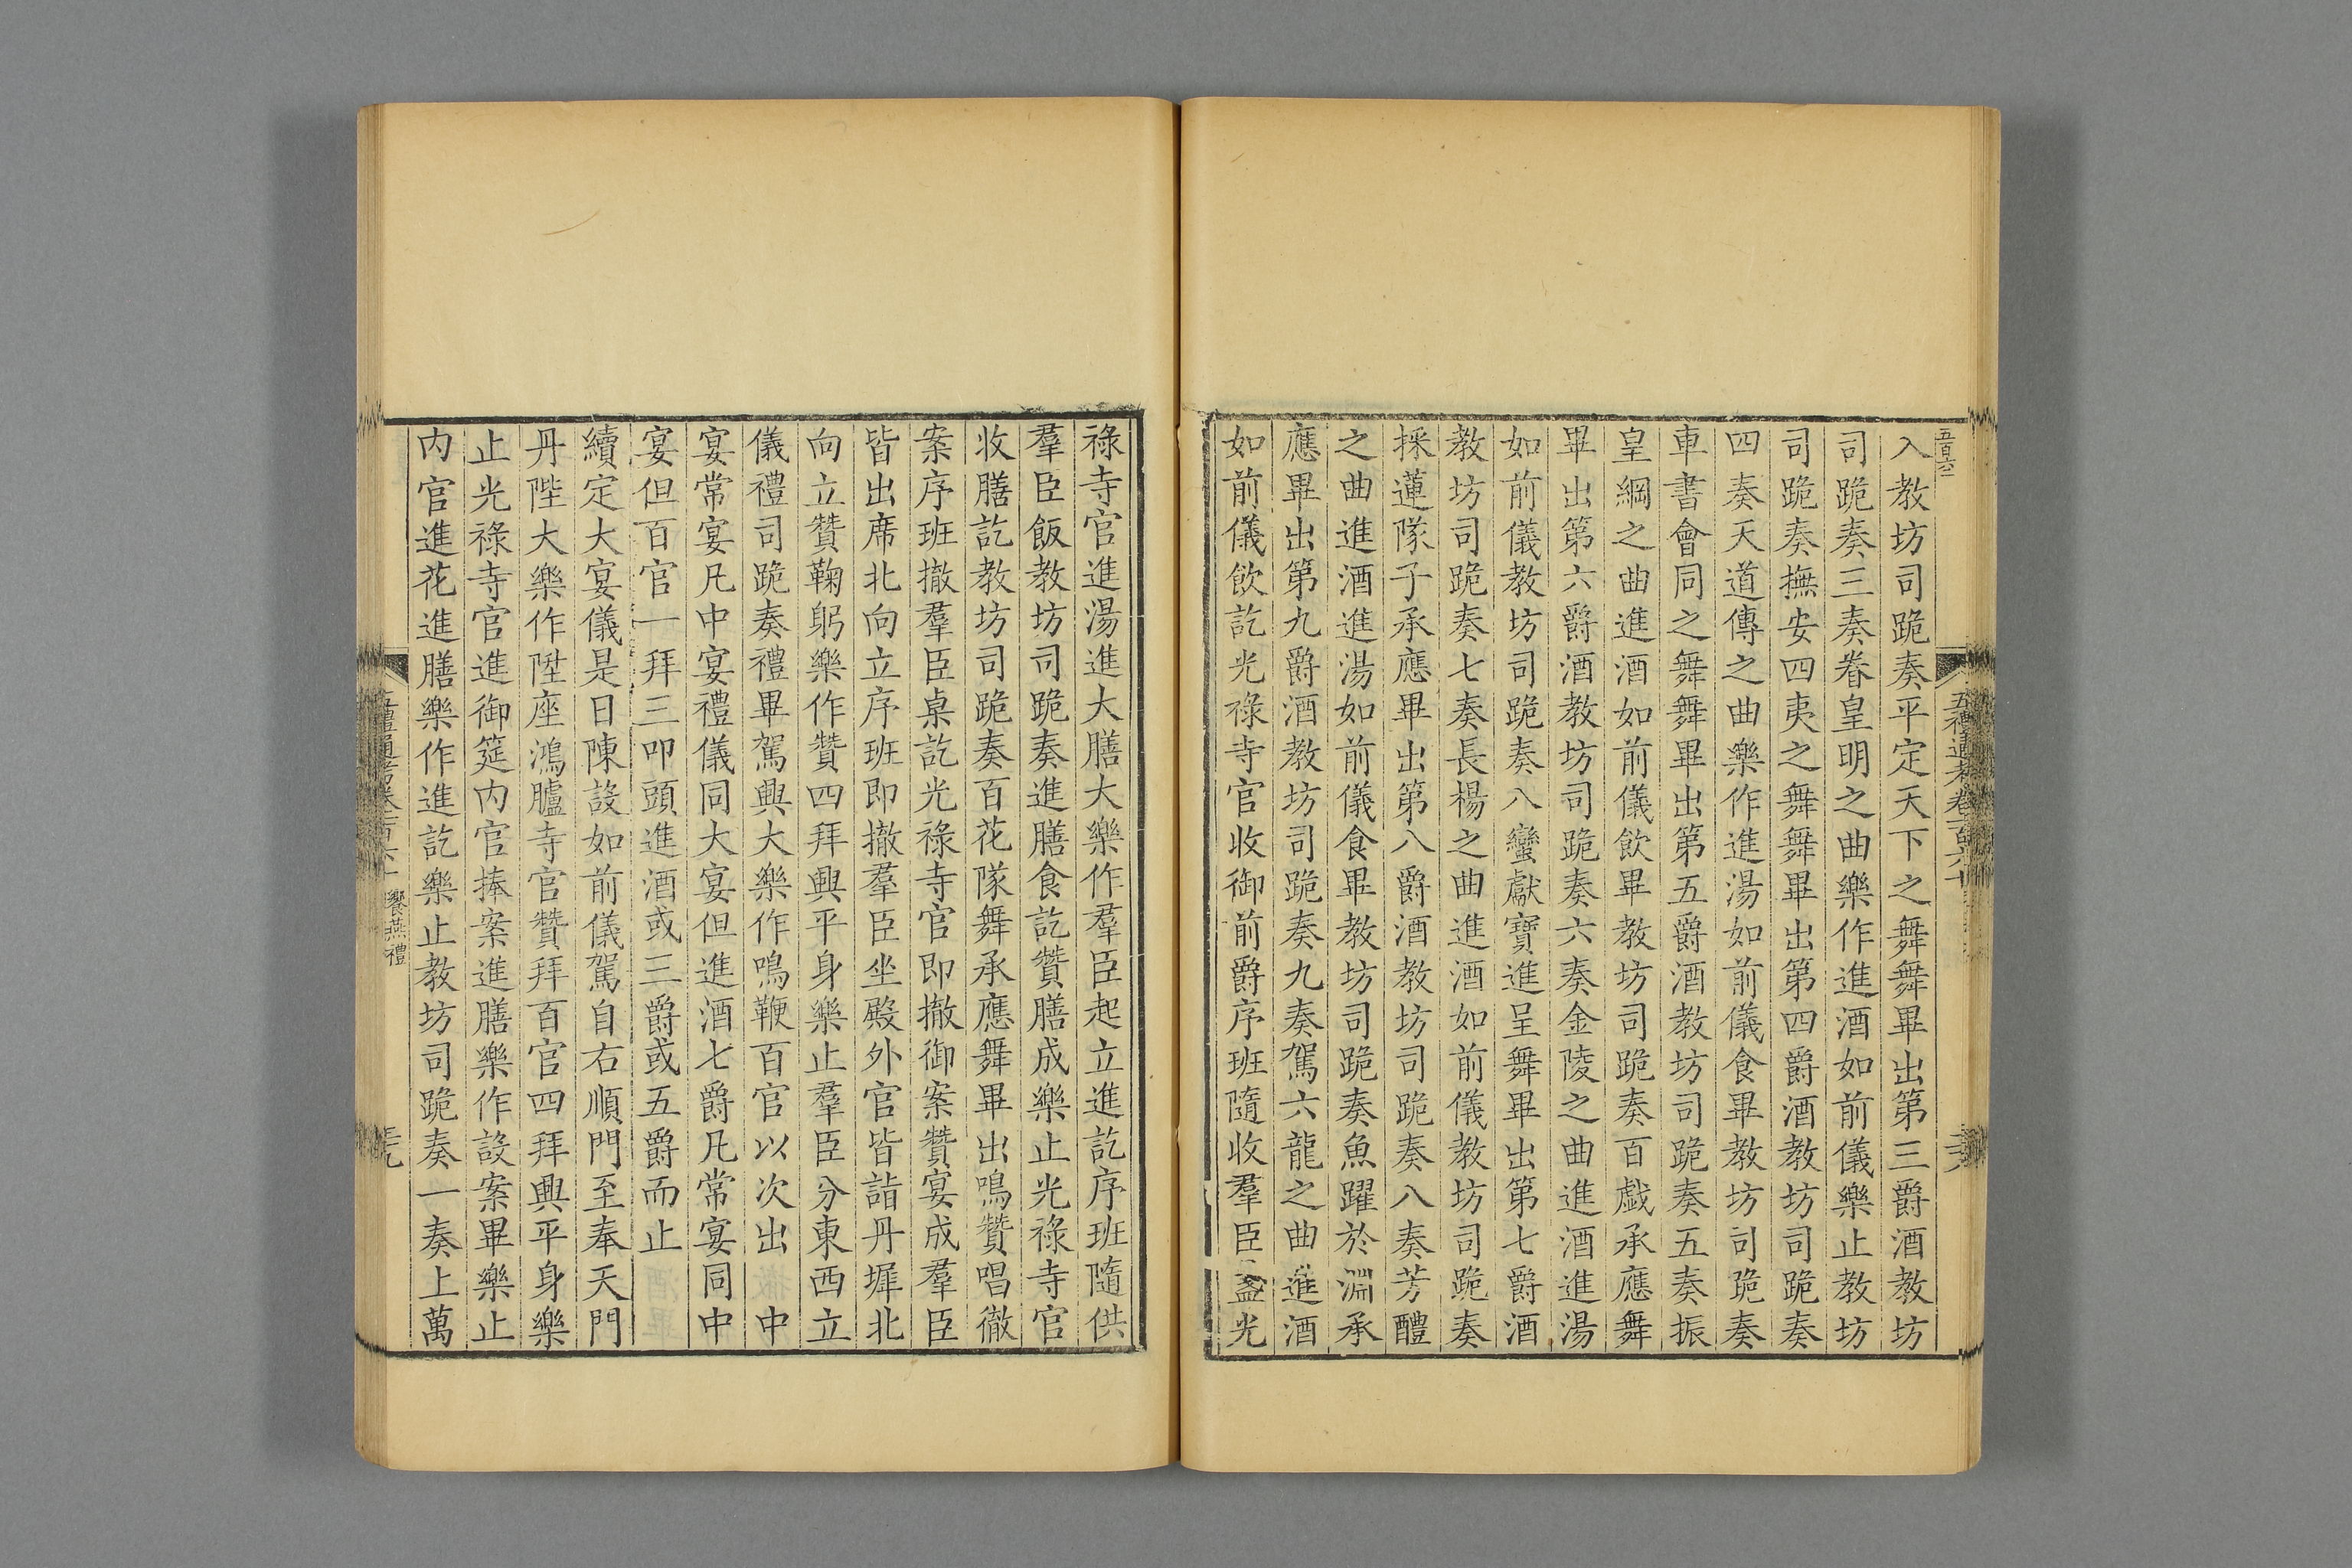 入教坊司跪奏平定天下之舞舞畢出第三爵酒教坊
司跪奏三奏眷皇明之曲樂作進酒如前儀樂止教坊
司跪奏撫安四夷之舞舞畢出第四爵酒教坊司跪奏
四奏天道傳之曲樂作進湯如前儀食畢教坊司跪奏
車書會同之舞舞畢出第五爵酒教坊司跪奏五奏振
皇綱之曲進酒如前儀飲畢教坊司跪奏百戲承應舞
畢出第六爵酒教坊司跪奏六奏金陵之曲進酒進湯
如前儀教坊司跪奏八蠻獻寶進呈舞畢出第七爵酒
教坊司跪奏七奏長楊之曲進酒如前儀教坊司跪奏
採蓮隊子承應畢出第八爵酒教坊司跪奏八奏芳醴
之曲進酒進湯如前儀食畢教坊司跪奏魚躍於淵承
應畢出第九爵酒教坊司跪奏九奏駕六龍之曲進酒
如前儀飲訖光祿寺官收御前爵序班隨收羣臣盞光
祿寺官進湯進大膳大樂作羣臣起立進訖序班隨供
羣臣飯教坊司跪奏進膳食訖贊膳成樂止光祿寺官
收膳訖教坊司跪奏百花隊舞承應舞畢出鳴贊唱徹
案序班撤羣臣桌訖光祿寺官即撤御案贊宴成羣臣
皆出席北向立序班即撤羣臣坐殿外官皆詣丹墀北
向立贊鞠躬樂作贊四拜興平身樂止羣臣分東西立
儀禮司跪奏禮畢駕興大樂作鳴鞭百官以次出　中
宴常宴凡中宴禮儀同大宴但進酒七爵凡常宴同中
宴但百官一拜三叩頭進酒或三爵或五爵而止
續定大宴儀是日陳設如前儀駕自右順門至奉天門
丹陛大樂作陞座鴻臚寺官贊拜百官四拜興平身樂
止光祿寺官進御筵內官捧案進膳樂作設案畢樂止
內官進花進膳樂作進訖樂止教坊司跪奏一奏上萬
饗燕禮